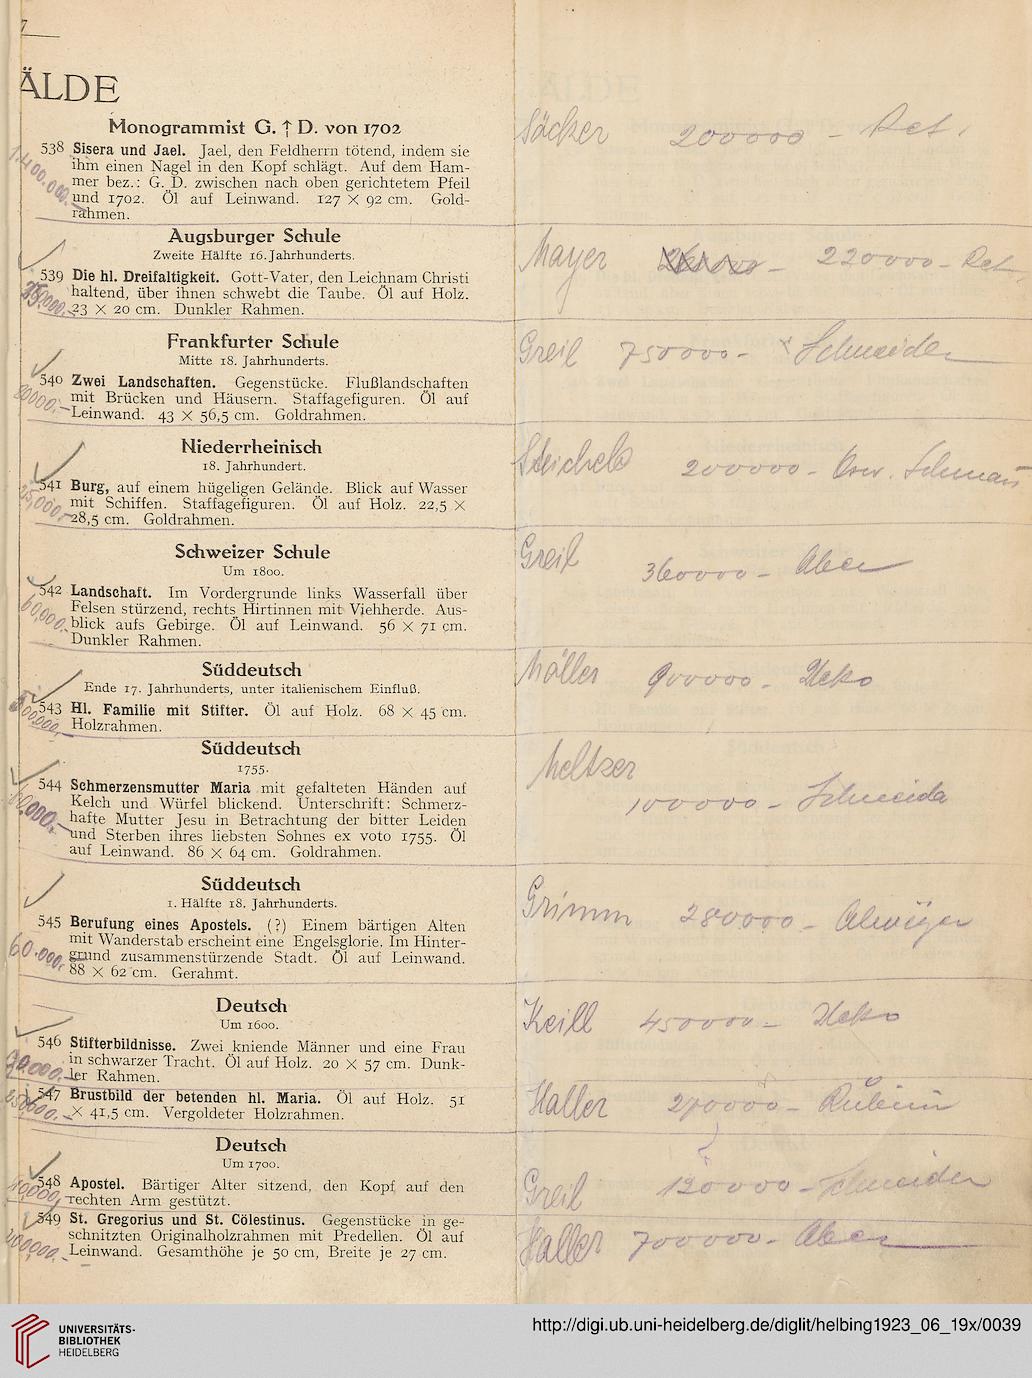 7
ÄLDE
Monogrammist G. ↑ D. von 1702
Säcker 200000 - Ret.
538 Sisera und Jael. Jael, den Feldherrn tötend, indem sie
ihm einen Nagel in den Kopf schlägt. Auf dem Ham-
mer bez.: G. D. zwischen nach oben gerichtetem Pfeil
und 1702. Öl auf Leinwand. 127 × 92 cm. Gold-
rahmen.
1.400.000.-
Augsburger Schule
Zweite Hälfte 16. Jahrhunderts.
Mayer 220000 - Ret
539 Die hl. Dreifaltigkeit. Gott-Vater, den Leichnam Christi
haltend, über ihnen schwebt die Taube. Öl auf Holz.
23 × 20 cm. Dunkler Rahmen.
Frankfurter Schule
Mitte 18. Jahrhunderts.
Greil 750000 - Schneider
540 Zwei Landschaften. Gegenstücke. Flußlandschaften
mit Brücken und Häusern. Staffagefiguren. Öl auf
Leinwand. 43 × 56,5 cm. Goldrahmen.
Niederrheinisch
18. Jahrhundert.
200000 -
541 Burg, auf einem hügeligen Gelände. Blick auf Wasser
mit Schiffen. Staffagefiguren. Öl auf Holz. 22,5 ×
28,5 cm. Goldrahmen.
Schweizer Schule
Um 1800.
Greil 360000 -
542 Landschaft. Im Vordergrunde links Wasserfall über
Felsen stürzend, rechts Hirtinnen mit Viehherde. Aus-
blick aufs Gebirge. Öl auf Leinwand. 56 × 71 cm.
Dunkler Rahmen.
60,000.-
Süddeutsch
Ende 17. Jahrhunderts, unter italienischem Einfluß.
Möller 900000 -
543 Hl. Familie mit Stifter. Öl auf Holz. 68 × 45 cm.
Holzrahmen.
Süddeutsch
1755.
Meltzer
100000 - Schneider
544 Schmerzensmutter Maria mit gefalteten Händen auf
Kelch und Würfel blickend. Unterschrift: Schmerz-
hafte Mutter Jesu in Betrachtung der bitter Leiden
und Sterben ihres liebsten Sohnes ex voto 1755. Öl
auf Leinwand. 86 × 64 cm. Goldrahmen.
Süddeutsch
1. Hälfte 18. Jahrhunderts.
Grimm 280000 -
545 Berufung eines Apostels. (?) Einem bärtigen Alten
mit Wanderstab erscheint eine Engelsglorie. Im Hinter-
grund zusammenstürzende Stadt. Öl auf Leinwand.
88 × 62 cm. Gerahmt.
60.000.-
Deutsch
Um 1600.
Keill 450000 -
546 Stifterbildnisse. Zwei kniende Männer und eine Frau
in schwarzer Tracht. Öl auf Holz. 20 × 57 cm. Dunk-
ler Rahmen.
547 Brustbild der betenden hl. Maria. Öl auf Holz. 51
× 41,5 cm. Vergoldeter Holzrahmen.
Haller 270000 -
Deutsch
Um 1700.
548 Apostel. Bärtiger Alter sitzend, den Kopf auf den
rechten Arm gestützt.
Greil - Schneider
549 St. Gregorius und St. Cölestinus. Gegenstücke in ge-
schnitzten Originalholzrahmen mit Predellen. Öl auf
Leinwand. Gesamthöhe je 50 cm, Breite je 27 cm.
Haller 700000 -
UNIVERSITÄTS-
BIBLIOTHEK
HEIDELBERG
http://digi.ub.uni-heidelberg.de/diglit/helbing1923_06_19x/0039